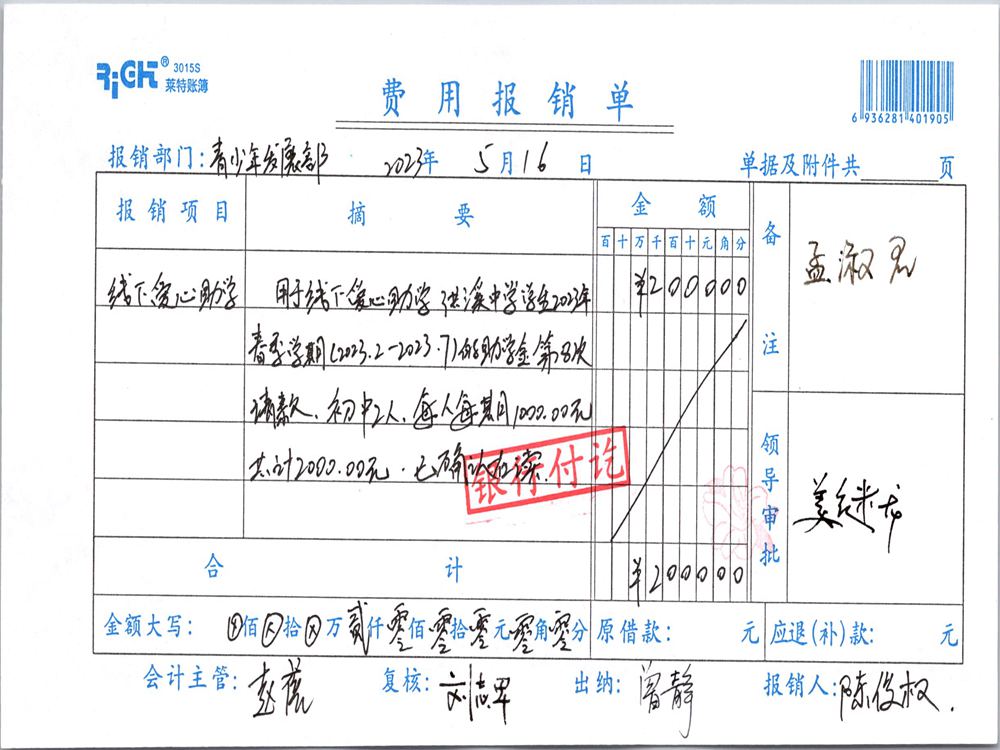 RiGHT® 3015S
莱特账簿
费用报销单
6 936281 401905
报销部门：青少年发展部 2023年 5月16日 单据及附件共 页
报销项目 摘要 金额 备注
百十万千百十元角分
孟淑君
线下爱心助学 用于线下爱心助学洪溪中学学生2023年 ¥200000
春季学期(2023.2-2023.7)的助学金第8次
请款、初中2人、每人每期1000.00元
共计2000.00元.已确认在读.
银行付讫
领导审批 姜继龙
合计 ¥200000
金额大写： 佰 拾 万贰仟零佰零拾零元零角零分 原借款： 元 应退(补)款： 元
会计主管： 复核：刘志军 出纳：曾静 报销人：陈俊权.